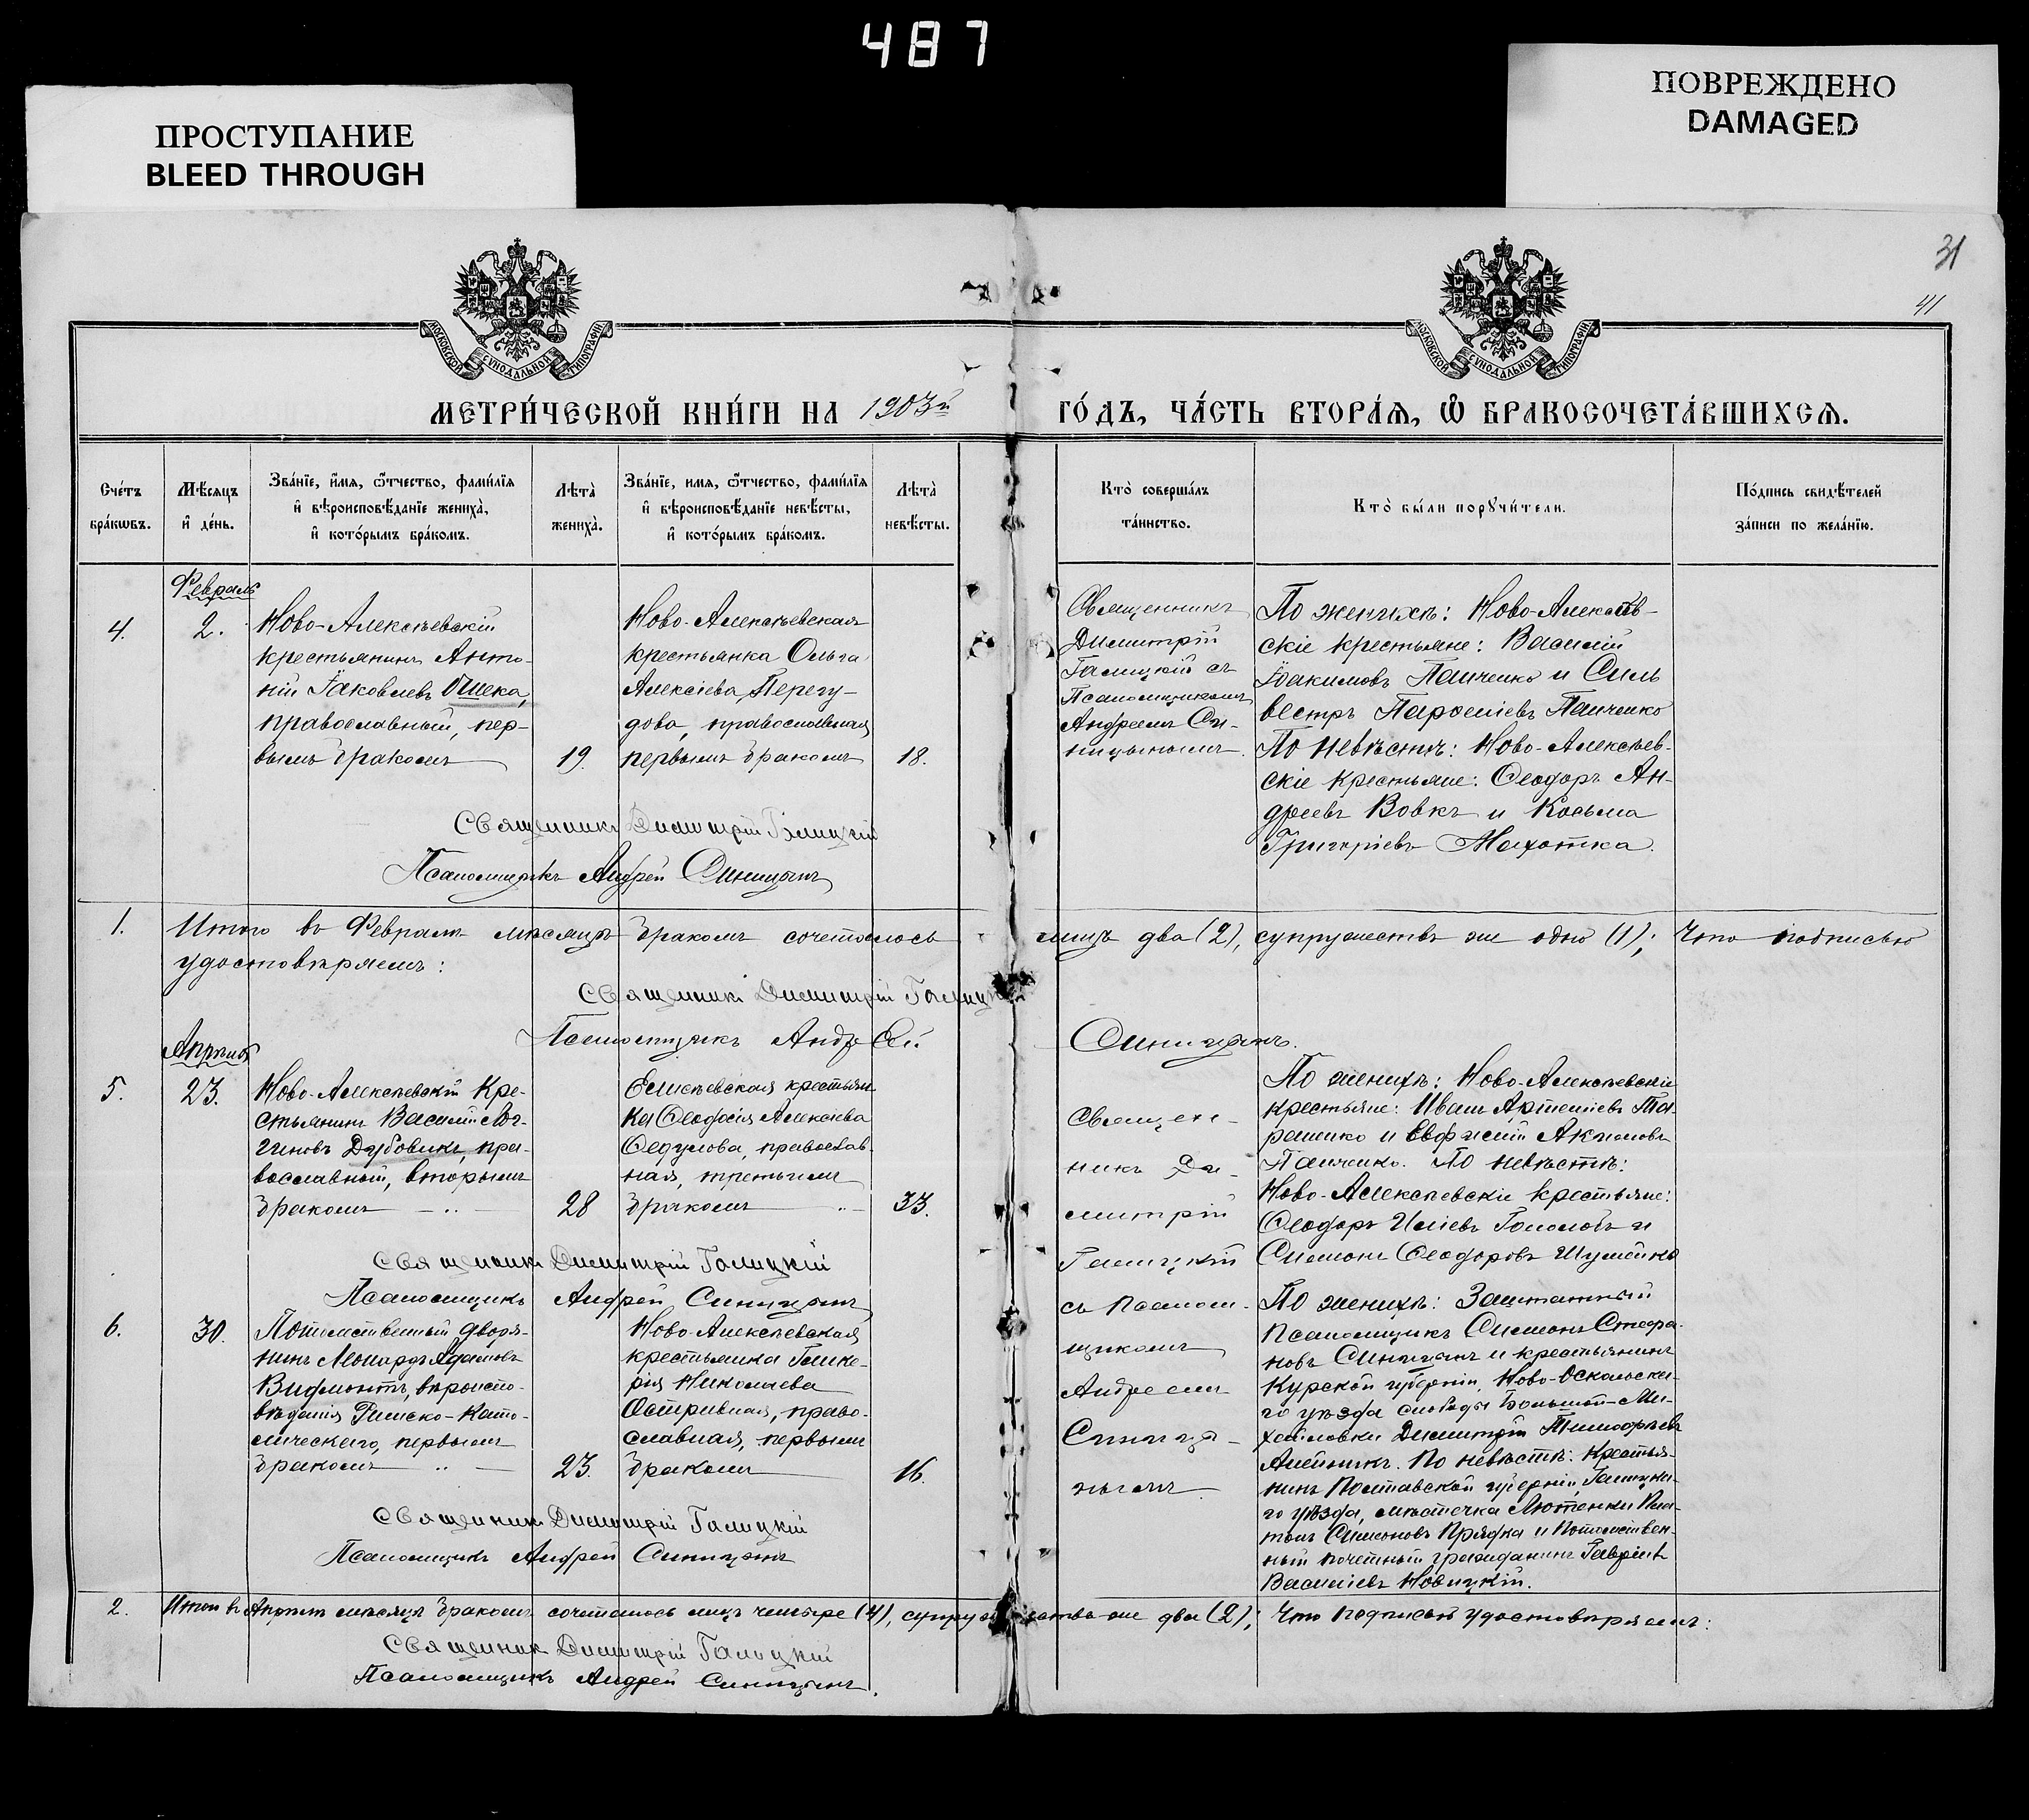 487
ПРОСТУПАНИЕ
BLEED THROUGH
ПОВРЕЖДЕНО
DAMAGED
31
41
МОСКОВСКОЙ СѴНОДАЛЬНОЙ ТИПОГРАФІИ
МОСКОВСКОЙ СѴНОДАЛЬНОЙ ТИПОГРАФІИ
МЕТРИ́ЧЕСКОЙ КНИ́ГИ НА 1903й ГО́ДЪ, ЧА́СТЬ ВТОРА́Я, Ѡ҆ БРАКОСОЧЕТА́ВШИХСЯ.
Сче́тъ
бра́кѡвъ.
Мѣ́сяцъ
и҆ де́нь.
Зва́нїе, и҆́мя, ѻ҆́тчество, фами́лїя
и҆ вѣроисповѣ́данїе жениха̀,
и҆ кото́рымъ бра́комъ.
Лѣта̀
жениха̀.
Зва́нїе, имя, ѻ҆́тчество, фами́лїя
и҆ вѣроисповѣ́данїе невѣ́сты,
и҆ кото́рымъ бра́комъ.
Лѣта̀
невѣ́сты.
Кто̀ соверша́лъ
та́инство.
Кто̀ бы́ли порꙋчи́тели.
По́дпись свидѣ́телей
за́писи по жела́нїю.
Февраль
4.
2.
Ново-Алексѣевскій
крестьянинъ Анто-
ній Іаковлевъ Ошека,
православный, пер-
вымъ бракомъ
19.
Ново-Алексѣевская
крестьянка Ольга
Алексіева Перегу-
дова, православная
первымъ бракомъ
18.
Священникъ
Димитрій
Галицкій съ
Псаломщикомъ
Андреемъ Си-
ницынымъ
По женихѣ: Ново-Алексѣев-
скіе крестьяне: Василій
Іоакимовъ Панченко и Силь
вестръ Панченко
По невѣстѣ: Ново-Алексѣев-
скіе крестьяне: Ѳеодоръ Ан-
дреевъ Вовкъ и Косьма
Григоріевъ Махотка.
Священникъ Димитрій Галицкій
Псаломщикъ Андрей Синицынъ
1.
Итого въ Февралѣ мѣсяцѣ бракомъ сочеталось лицъ два (2), супружествъ же одно (1); Что подписью
удостовѣряемъ:
Священникъ Димитрій Галицкій
Псаломщикъ Андрей Синицынъ.
Апрѣль
5.
23.
Ново-Алексѣевскій кре-
стьянинъ Василій Лог-
гиновъ Дубовикъ, пра-
вославный, вторымъ
бракомъ
28
Елисѣевская крестьян
ка Ѳеодосія Алексіева
Ѳедулова, православ-
ная, третьимъ
бракомъ
33.
Священ-
никъ Ди-
митрій
Галицкій
съ Псалом-
щикомъ
Андреемъ
Синицы-
нымъ
По женихѣ: Ново-Алексѣевскіе
крестьяне: Иванъ Артеміевъ Та-
ращенко и Евфимій Акимовъ
Панченко. По невѣстѣ:
Ново-Алексѣевскіе крестьяне:
Ѳеодоръ Иліевъ и
Симеонъ Ѳеодоровъ Шумейко
Священникъ Димитрій Галицкій
Псаломщикъ Андрей Синицынъ
6.
30.
Потомственный дворя-
нинъ Леонардъ Адамовъ
Видмонтъ, вѣроиспо-
вѣданія Римско-Като-
лическаго, первымъ
бракомъ
23.
Ново-Алексѣевская
крестьянка Глике-
рія Николаева
Остривная, право-
славная, первымъ
бракомъ
16.
По женихѣ: Заштатный
Псаломщикъ Симеонъ Стефа-
новъ Синицынъ и крестьянинъ
Курской губерніи, Ново-Оскольска-
го уѣзда слободы Большой-Ми-
хайловки Димитрій Тимофѣевъ
Алейникъ. По невѣстѣ: Крестья-
нинъ Полтавской губерніи,
го уѣзда, мѣстечка Лютенки Пла-
тонъ Симеоновъ Прядка и Потомствен-
ный почетный гражданинъ Гавріилъ
Василіевъ Новицкій.
Священникъ Димитрій Галицкій
Псаломщикъ Андрей Синицынъ
2.
Итого въ Апрѣлѣ мѣсяцѣ бракомъ сочеталось лицъ четыре (4), супружества же два (2); Что подписью удостовѣряемъ:
Священникъ Димитрій Галицкій
Псаломщикъ Андрей Синицынъ.